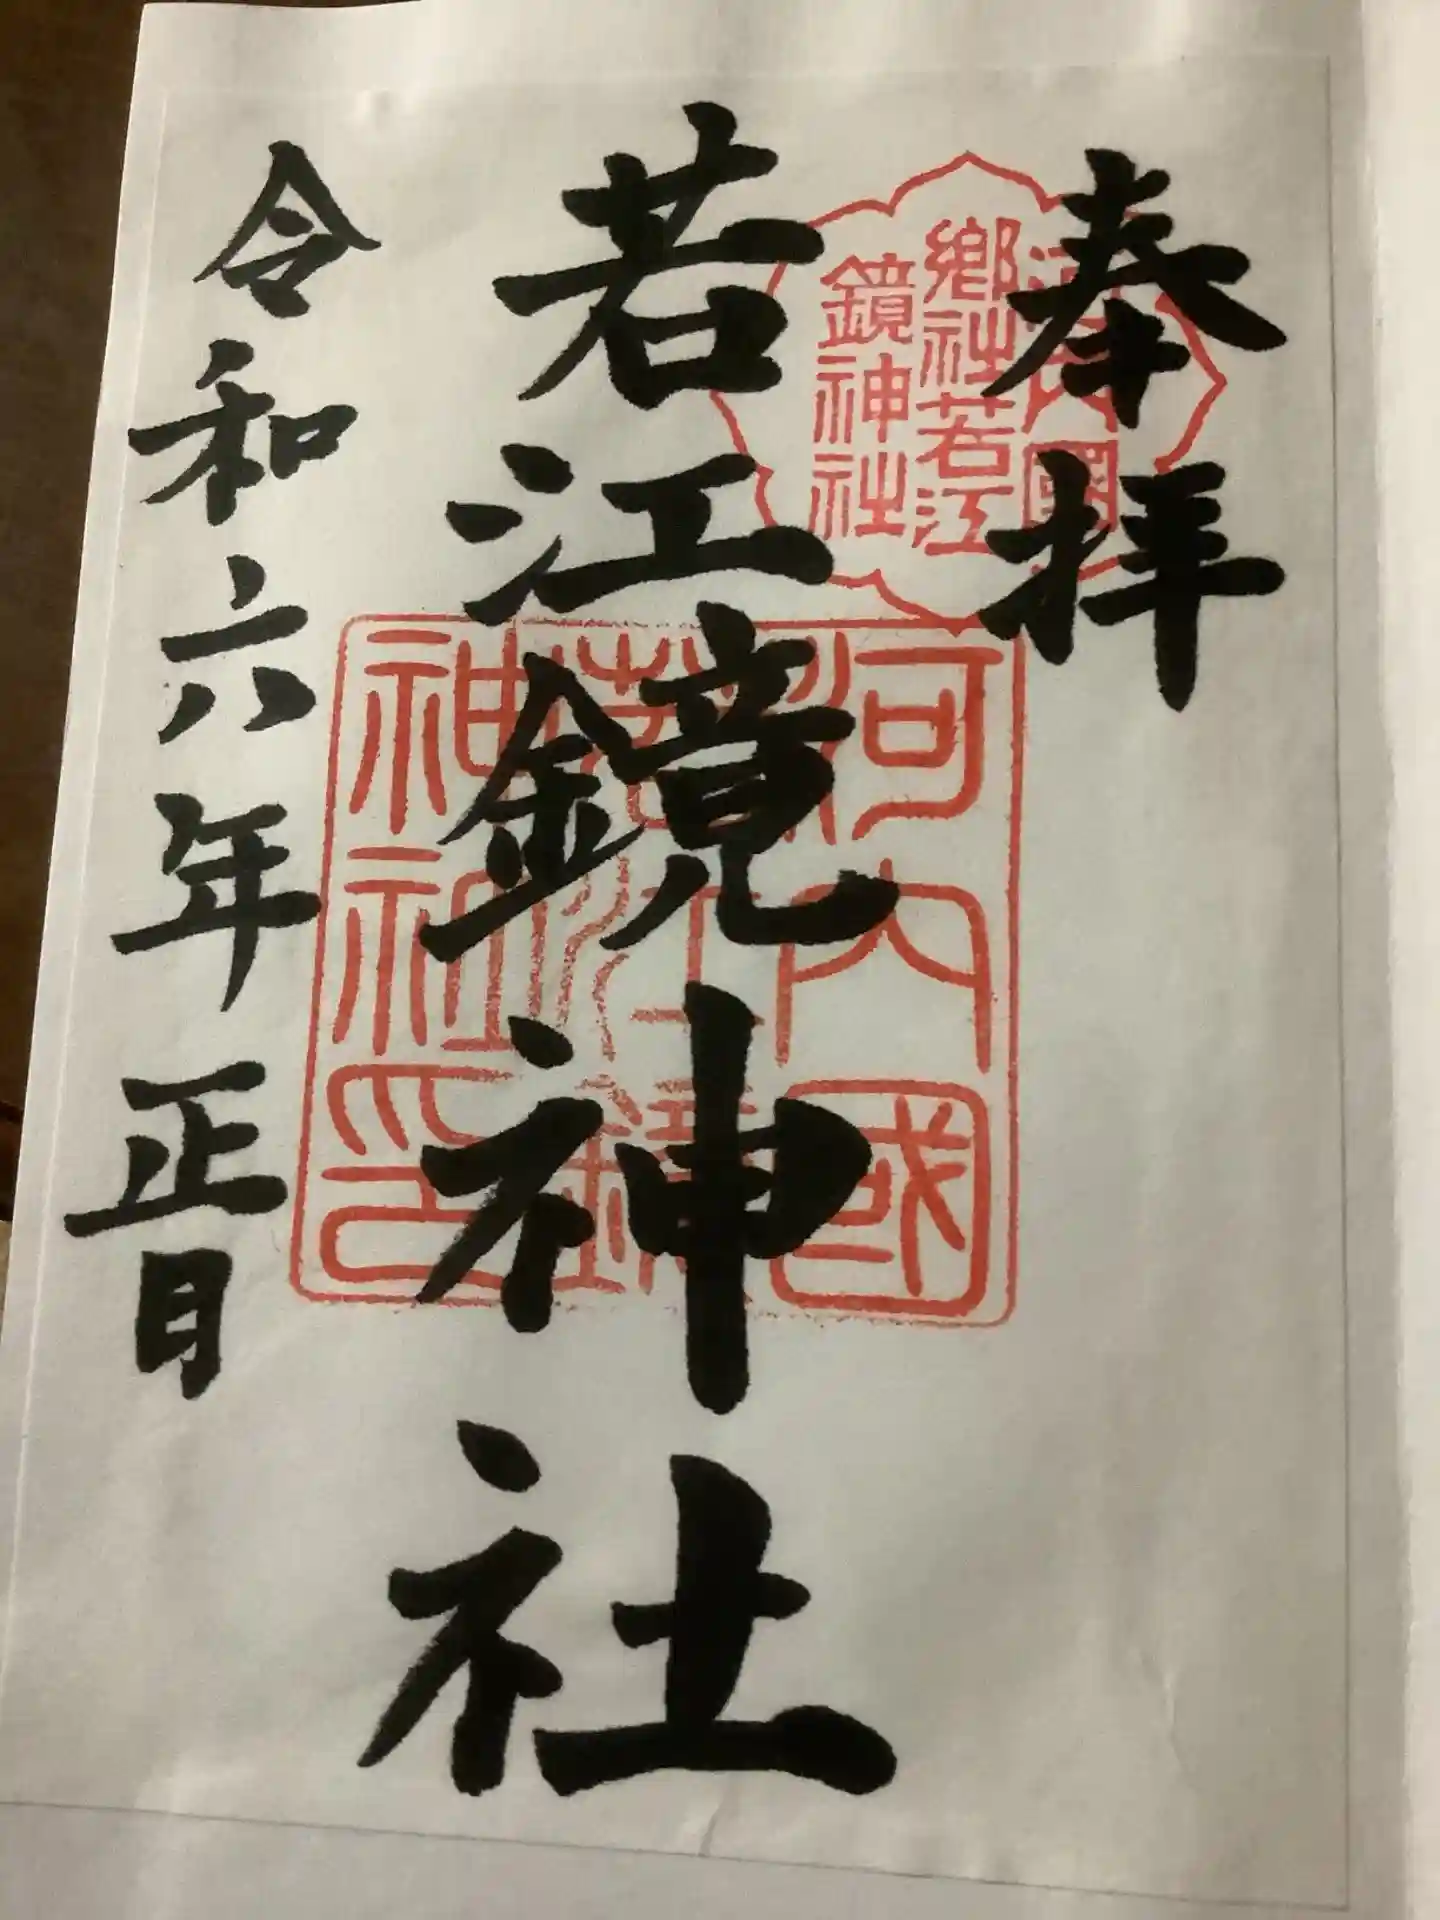 奉拝
河内國
郷社若江
鏡神社
若江鏡神社
河内國
若江鏡
神社印
令和六年正月